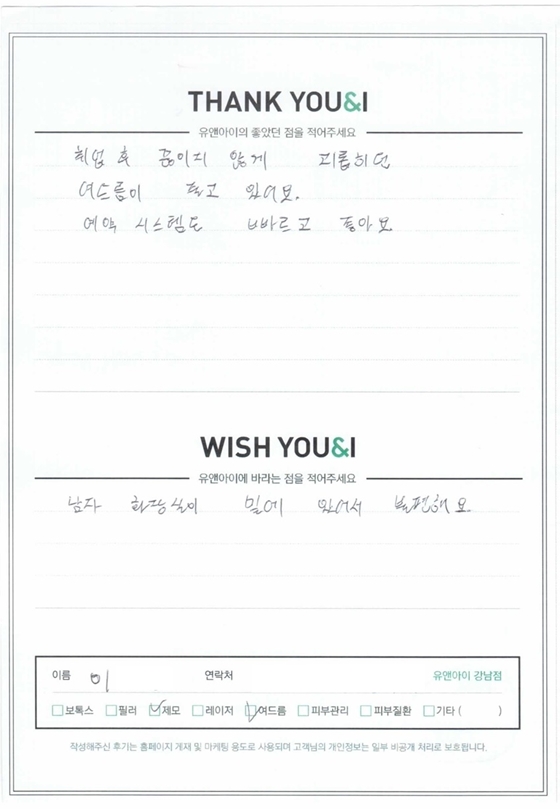 THANK YOU&I
유앤아이의 좋았던 점을 적어주세요
취업 후 끊이지 않게 괴롭히던
여드름이 줄고 있어요.
예약 시스템도 빠르고 좋아요
WISH YOU&I
유앤아이에 바라는 점을 적어주세요
남자 화장실이 밑에 있어서 불편해요.
이름 이 연락처 유앤아이 강남점
보톡스 필러 제모 레이저 여드름 피부관리 피부질환 기타 ( )
작성해주신 후기는 홈페이지 게재 및 마케팅 용도로 사용되며 고객님의 개인정보는 일부 비공개 처리로 보호됩니다.